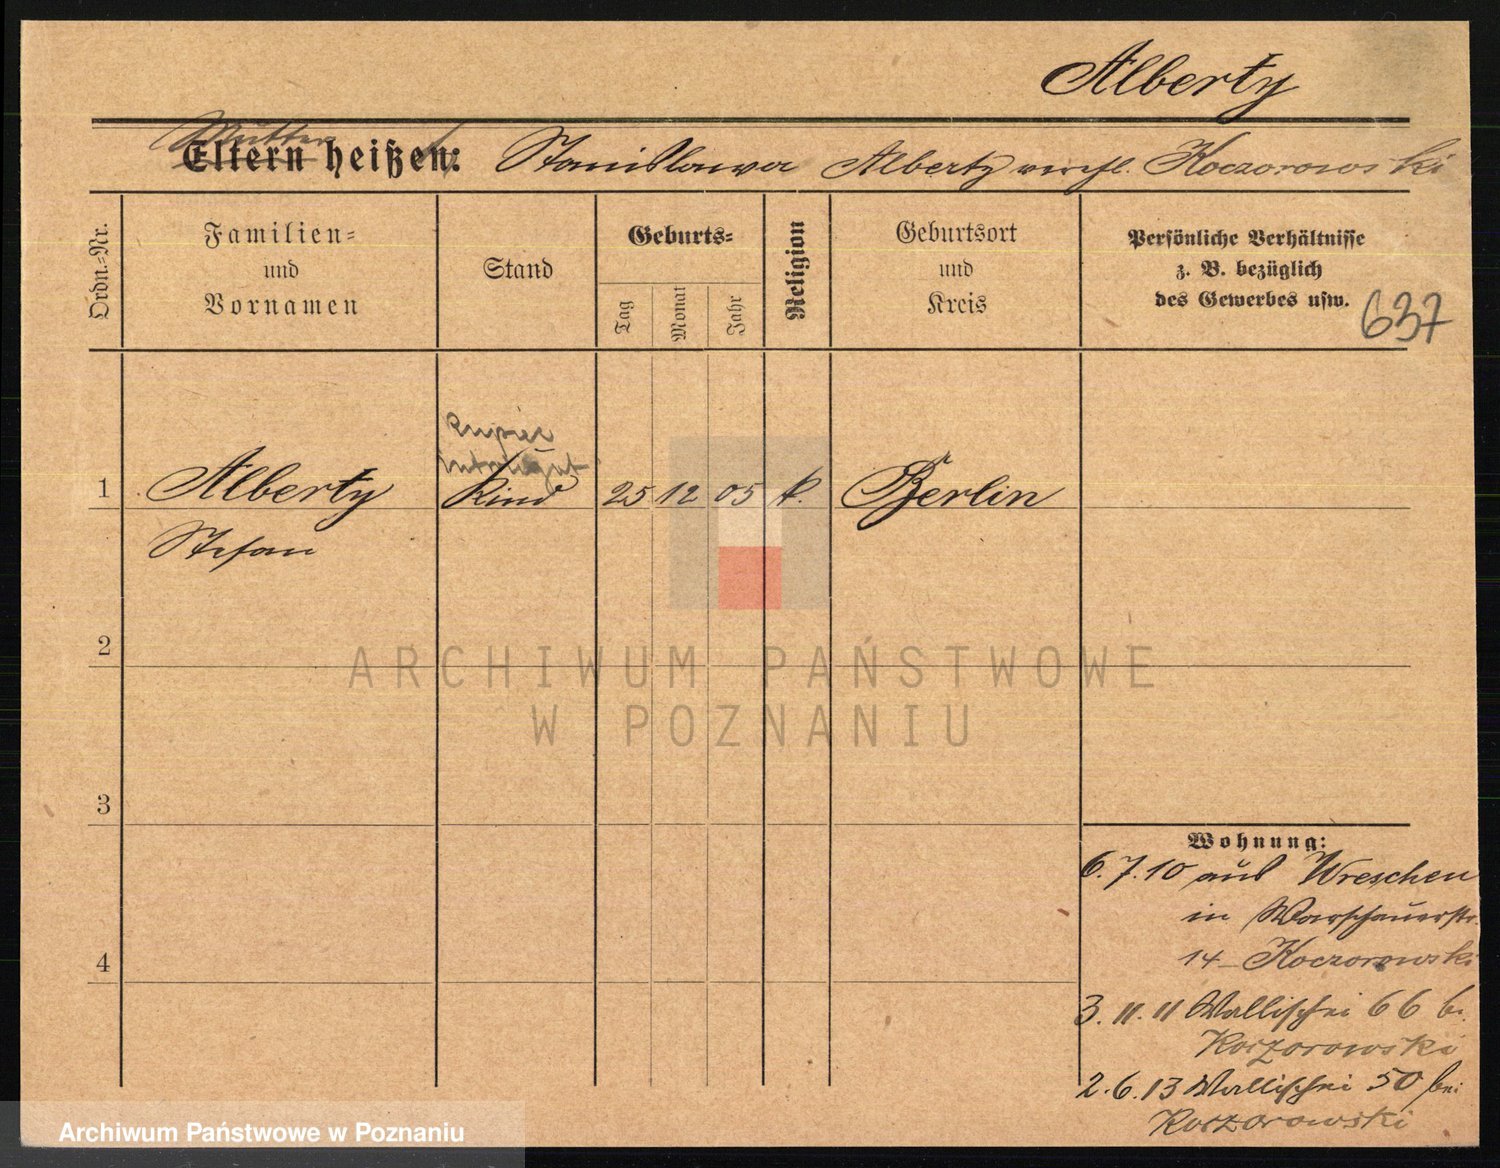 Alberty
Mutter
Eltern heißen: Stanislawa Alberty verehl. Koczorowski
Ordn.-Nr.
Familien-
und
Vornamen
Stand
Geburts-
Tag
Monat
Jahr
Religion
Geburtsort
und
Kreis
Persönliche Verhältnisse
z. B. bezüglich
des Gewerbes usw.
637
kupiec
1 Alberty Kind 25 12 05 k. Berlin
Stefan
2
3
4
Wohnung:
6.7.10 aus Wreschen
in Warschauerstr.
14 - Koczorowski
3.11.11 Wallischei 66 b.
Koczorowski
2.6.13 Wallischei 50 bei
Koczorowski
ARCHIWUM PAŃSTWOWE
W POZNANIU
Archiwum Państwowe w Poznaniu